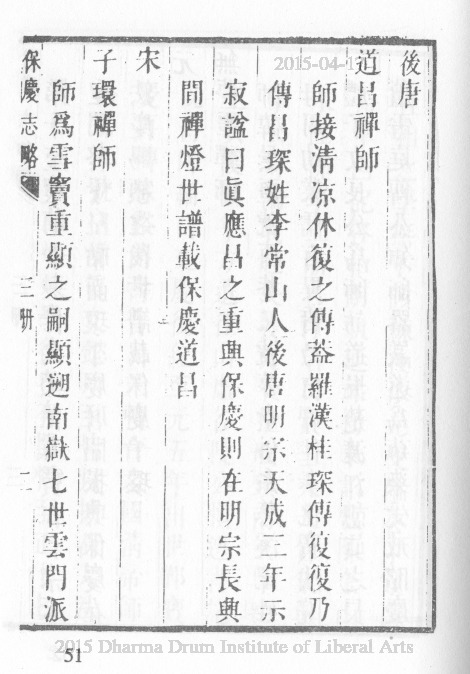 後唐
道昌禪師
師接清凉休復之傳葢羅漢桂琛傳復復乃
傳昌琛姓李常山人後唐明宗天成三年示
寂諡曰眞應昌之重興保慶則在明宗長興
間禪燈世譜載保慶道昌
宋
子環禪師
師爲雪竇重顯之嗣顯遡南嶽七世雲門派
保慶志略
三册
二
51
2015-04-1
2015 Dharma Drum Institute of Liberal Arts